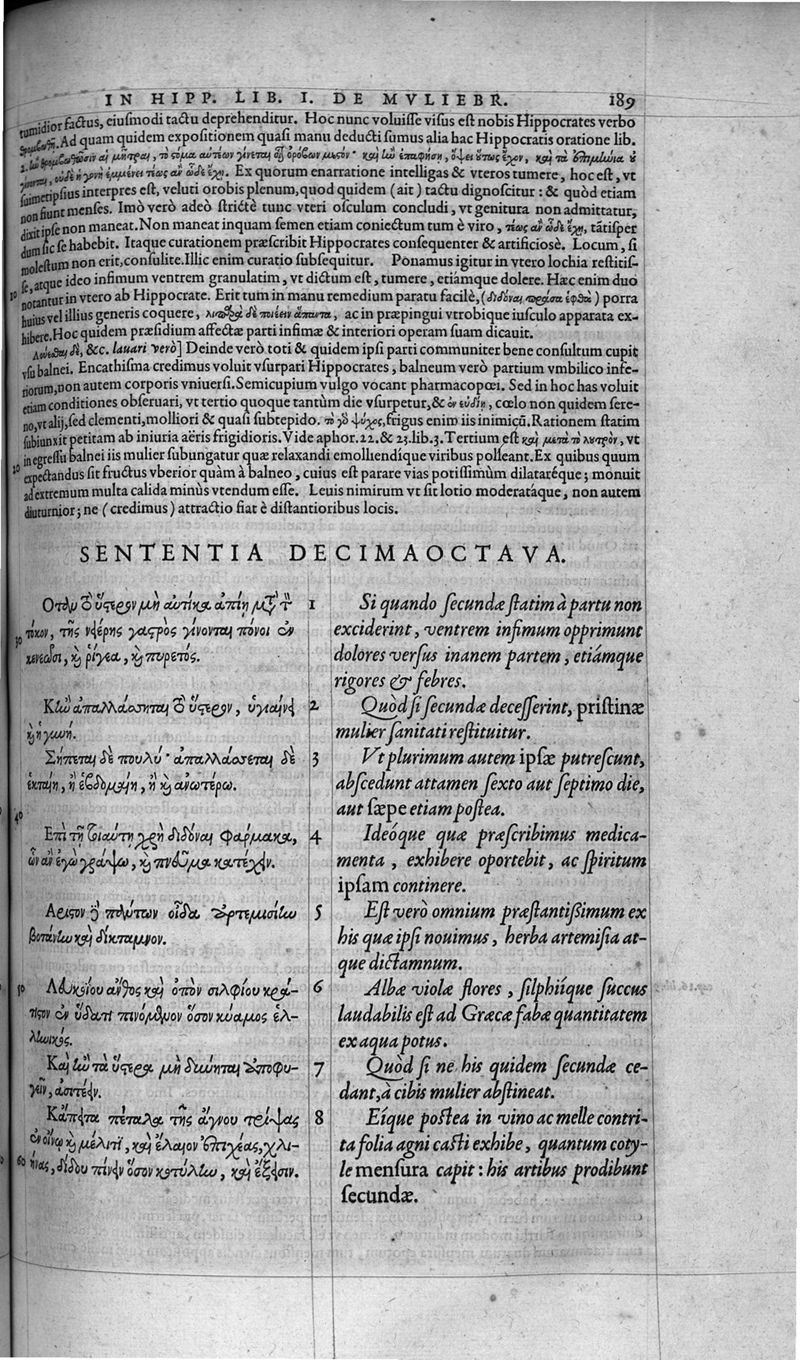 IN HIPP. LIB. I. DE MVLIEBR. 189
tumidior factus, eiusmodi tactu deprehenditur. Hoc nunc voluisse visus est nobis Hippocrates verbo
Ad quam quidem expositionem quasi manu deducti sumus alia hac Hippocratis oratione lib.
Ex quorum enarratione intelligas & vteros tumere, hoc est, vt
suimetipsius interpres est, veluti orobis plenum, quod quidem (ait) tactu dignoscitur: & quòd etiam
non fiunt menses. Imò verò adeo strictè tunc vteri osculum concludi, vt genitura non admittatur,
dixit ipse non maneat. Non maneat inquam semen etiam coniectum tum è viro, πως ἂν ὧδε ἔχῃ, tãtisper
dum sic se habebit. Itaque curationem præscribit Hippocrates consequenter & artificiosè. Locum, si
molestum non erit, consulite. Illic enim curatio subsequitur. Ponamus igitur in vtero lochia restitis-
se, atque ideo infimum ventrem granulatim, vt dictum est, tumere, etiámque dolere. Hæc enim duo
10 notantur in vtero ab Hippocrate. Erit tum in manu remedium paratu facilè, (διδόναι πράσα ἑφθὰ) porra
huius vel illius generis coquere, λιπαρὰ δὲ ποιέειν ἅπαντα, ac in præpingui vtrobique iusculo apparata ex-
hibere. Hoc quidem præsidium affectæ parti infimæ & interiori operam suam dicauit.
Λούεσθαι δὲ, &c. lauari verò] Deinde verò toti & quidem ipsi parti communiter bene consultum cupit
vsu balnei. Encathisma credimus voluit vsurpari Hippocrates, balneum verò partium vmbilico infe-
riorum, non autem corporis vniuersi. Semicupium vulgo vocant pharmacopœi. Sed in hoc has voluit
etiam conditiones obseruari, vt tertio quoque tantùm die vsurpetur, & ἐν εὐδίῃ, cœlo non quidem sere-
no, vt alij, sed clementi, molliori & quasi subtepido. τὸ γὸ ψύχος, frigus enim iis inimicũ. Rationem statim
subiunxit petitam ab iniuria aëris frigidioris. Vide aphor. 22. & 23. lib. 3. Tertium est καὶ μετὰ τὸ λουτρὸν, vt
in egressu balnei iis mulier subungatur quæ relaxandi emolliendíque viribus polleant. Ex quibus quum
20 expectandus sit fructus vberior quàm à balneo, cuius est parare vias potissimùm dilataréque; monuit
ad extremum multa calida minùs vtendum esse. Leuis nimirum vt sit lotio moderatáque, non autem
diuturnior; ne (credimus) attractio fiat è distantioribus locis.
SENTENTIA DECIMAOCTAVA.
Οταν δὲ ὕστερον μὴ αὐτίκα ἀπίῃ μετὰ τ
30 τόκον, τῆς νειέρης γαστρὸς γίνονται πόνοι ἐν
κενεῶσι, καὶ ῥίγεα, καὶ πυρετός.
Κἢν ἀπαλλάσσηται τὸ ὕστερον, ὑγιαίνει
καὶ ἡ γυνή.
Σήπεται δὲ πουλύ· ἀπαλλάσσεται δὲ
ἑκταίη, ἢ ἑβδομαίη, ἢ καὶ ἀνωτέρω.
40
Επὶ τῇ τοιαύτῃ χρὴ διδόναι φάρμακα,
ὧν ἂν ἐγὼ γράψω, καὶ πνεῦμα κατέχειν.
Αριστον δὲ πάντων οἶδα ἀρτεμισίην
βοτάνην καὶ δίκταμνον.
50 Λευκοΐου ἄνθος καὶ ὀπὸν σιλφίου κρά-
τιστον ἐν ὕδατι πινόμενον ὅσον κύαμος ἑλ-
ληνικός.
Καὶ ἢν τὰ ὕστερα μὴ δύνηται ἀποφυ-
γεῖν, ἀσιτεῖν.
Κἄπειτα πέταλα τῆς ἄγνου τρίψας
ἐν οἴνῳ καὶ μέλιτι, καὶ ἔλαιον ἐπιχέας, χλι-
60 ήνας, δίδου πίνειν ὅσον κοτύλην, καὶ ἔξεισιν.
1 Si quando secundæ statim à partu non
exciderint, ventrem infimum opprimunt
dolores versus inanem partem, etiámque
rigores & febres.
2 Quòd si secundæ decesserint, pristinæ
mulier sanitati restituitur.
3 Vt plurimum autem ipsæ putrescunt,
abscedunt attamen sexto aut septimo die,
aut sæpe etiam postea.
4 Ideóque quæ præscribimus medica-
menta, exhibere oportebit, ac spiritum
ipsam continere.
5 Est verò omnium præstantissimum ex
his quæ ipsi nouimus, herba artemisia at-
que dictamnum.
6 Albæ violæ flores, silphiíque succus
laudabilis est ad Græcæ fabæ quantitatem
ex aqua potus.
7 Quòd si ne his quidem secundæ ce-
dant, à cibis mulier abstineat.
8 Eíque postea in vino ac melle contri-
ta folia agni casti exhibe, quantum coty-
le mensura capit: his artibus prodibunt
secundæ.